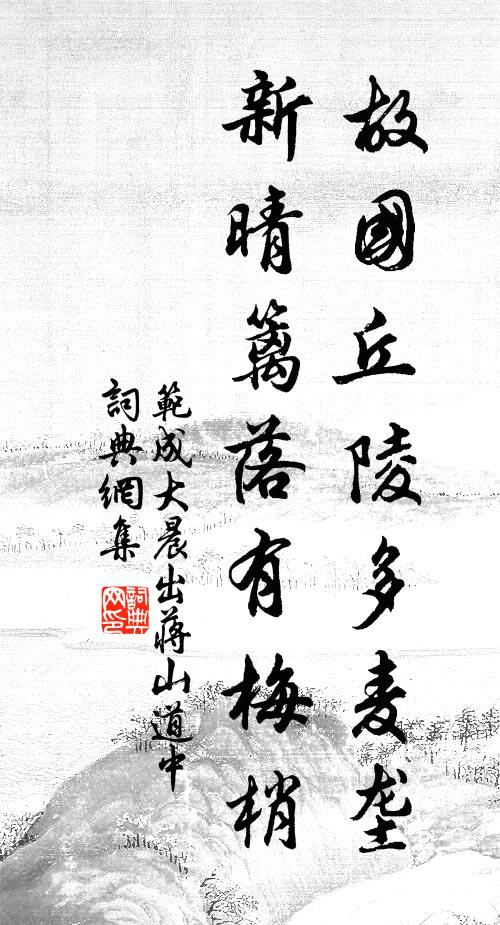 故國丘陵多麦垄
新晴篱落有梅梢
範成大晨出蔣山道中
詞典網集
詞典
网印